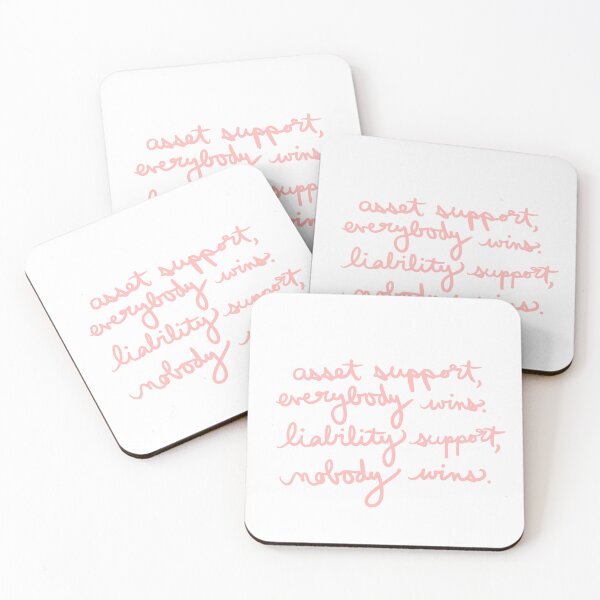 asset support,
everybody wins
asset support,
everybody wins.
liability support,
asset support,
everybody wins.
liability support,
nobody
asset support,
everybody wins.
liability support,
nobody wins.